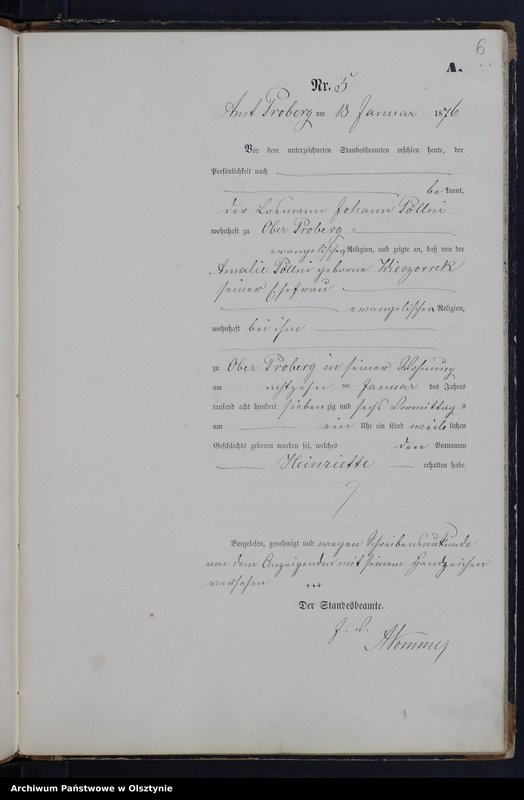 6
A.
Nr. 5
Amt Proberg am 18 Januar 1876
Vor dem unterzeichneten Standesbeamten erschien heute, der
Persönlichkeit nach
be kannt,
der Losmann Johann Pöllni
wohnhaft zu Ober Proberg
evangelischer Religion, und zeigte an, daß von der
Amalie Pöllni geborne Wieczorrek
seiner Ehefrau
evangelischer Religion,
wohnhaft bei ihm
zu Ober Proberg in seiner Wohnung
am achtzehn ten Januar des Jahres
tausend acht hundert sieben zig und sechs Vormittag s
um ein Uhr ein Kind weib lichen
Geschlechts geboren worden sei, welches den Vornamen
Heinriette erhalten habe.
Vorgelesen, genehmigt und wegen Schreibensunkunde
von dem Anzeigenden mit seinem Handzeichen
versehen +++
Der Standesbeamte.
Archiwum Państwowe w Olsztynie